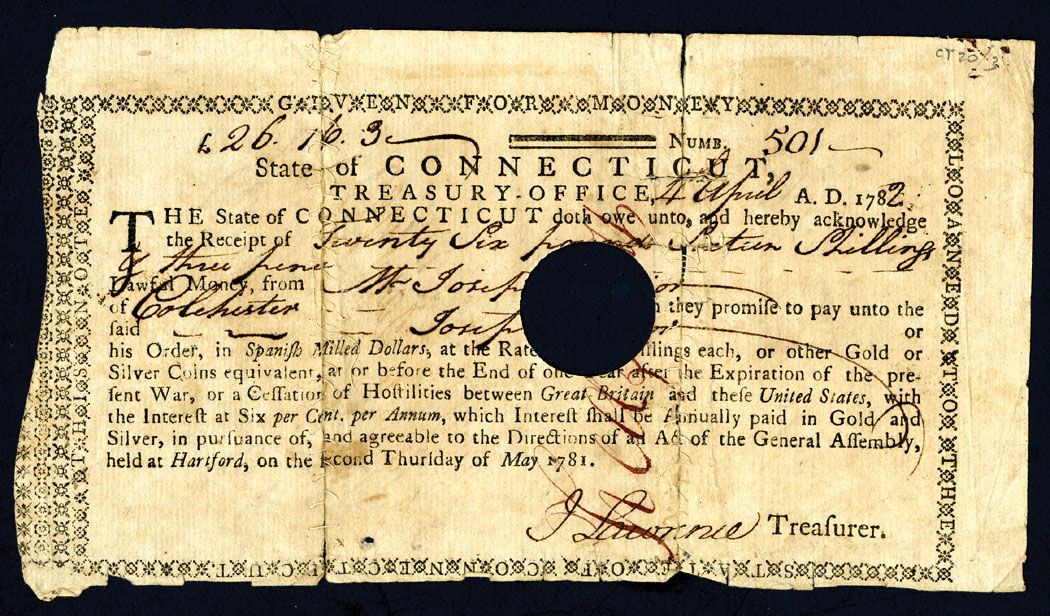 GIVEN FOR MONEY
LOANED TO THE
STATE OF CONNECTICUT.
THIS NOTE
£ 26. 16. 3 NUMB. 501
State of CONNECTICUT,
TREASURY-OFFICE, 4 April A. D. 1782
THE State of CONNECTICUT doth owe unto, and hereby acknowledge
the Receipt of Twenty Six pounds Sixteen Shillings
& three pence
Lawful Money, from Mr Joseph
of Colchester they promise to pay unto the
ſaid Joseph or
his Order, in Spaniſh Milled Dollars, at the Rate each, or other Gold or
Silver Coins equivalent, at or before the End of one Year after the Expiration of the pre-
ſent War, or a Ceſſation of Hoſtilities between Great Britain and theſe United States, with
the Intereſt at Six per Cent. per Annum, which Intereſt ſhall be Annually paid in Gold and
Silver, in purſuance of, and agreeable to the Directions of an Act of the General Aſſembly,
held at Hartford, on the ſecond Thurſday of May 1781.
J Lawrence Treaſurer.